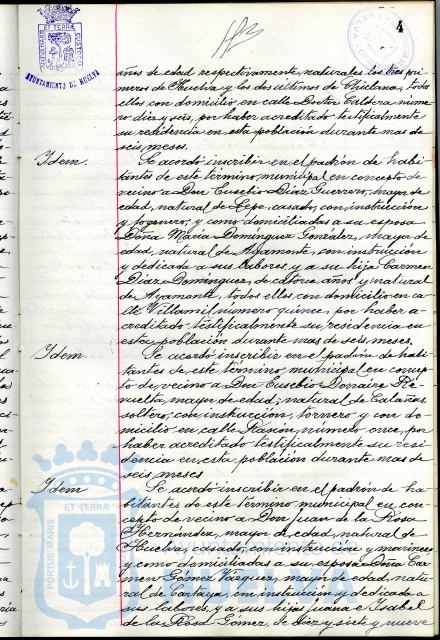 4
AYUNTAMIENTO DE HUELVA
años de edad respectivamente, naturales los tres pri-
meros de Huelva y los dos últimos de Chiclana, todos
ellos con domicilio en calle Doctor Caldera núme-
ro diez y seis, por haber acreditado testificalmente
su residencia en esta población durante mas de
seis meses.
Idem. Se acordó inscribir en el padrón de habi-
tantes de este término municipal en concepto de
vecino a Don Eusebio Díaz Guerrero, mayor de
edad, natural de Lepe, casado, con instrucción
y fogonero, y como domiciliadas a su esposa
Doña María Domínguez González, mayor de
edad, natural de Ayamonte, con instrucción
y dedicada a sus labores, y a su hija Carmen
Díaz Domínguez, de catorce años y natural
de Ayamonte, todos ellos con domicilio en ca-
lle Villamil número quince, por haber a-
creditado testificalmente su residencia en
esta población durante mas de seis meses.
Idem Se acordó inscribir en el padrón de habi-
tantes de este término municipal en concep-
to de vecino a Don Eusebio Donaire
mayor de edad, natural de Calañas
soltero, con instrucción, tornero y con do-
micilio en calle Rascón, número once, por
haber acreditado testificalmente su resi-
dencia en esta población durante mas de
seis meses
Idem Se acordó inscribir en el padrón de ha-
bitantes de este término municipal en con-
cepto de vecino a Don Juan de la Rosa
Hernández, mayor de edad, natural de
Huelva, casado, con instrucción y marinero
y como domiciliadas a su esposa Doña Car-
men Gómez Vázquez, mayor de edad, natu-
ral de Cartaya con instrucción y dedicada a
sus labores, y a sus hijas Juana e Isabel
de la Rosa Gómez, de diez y siete y nueve
PORTUS MARIS
ET TERRÆ
HUELVA